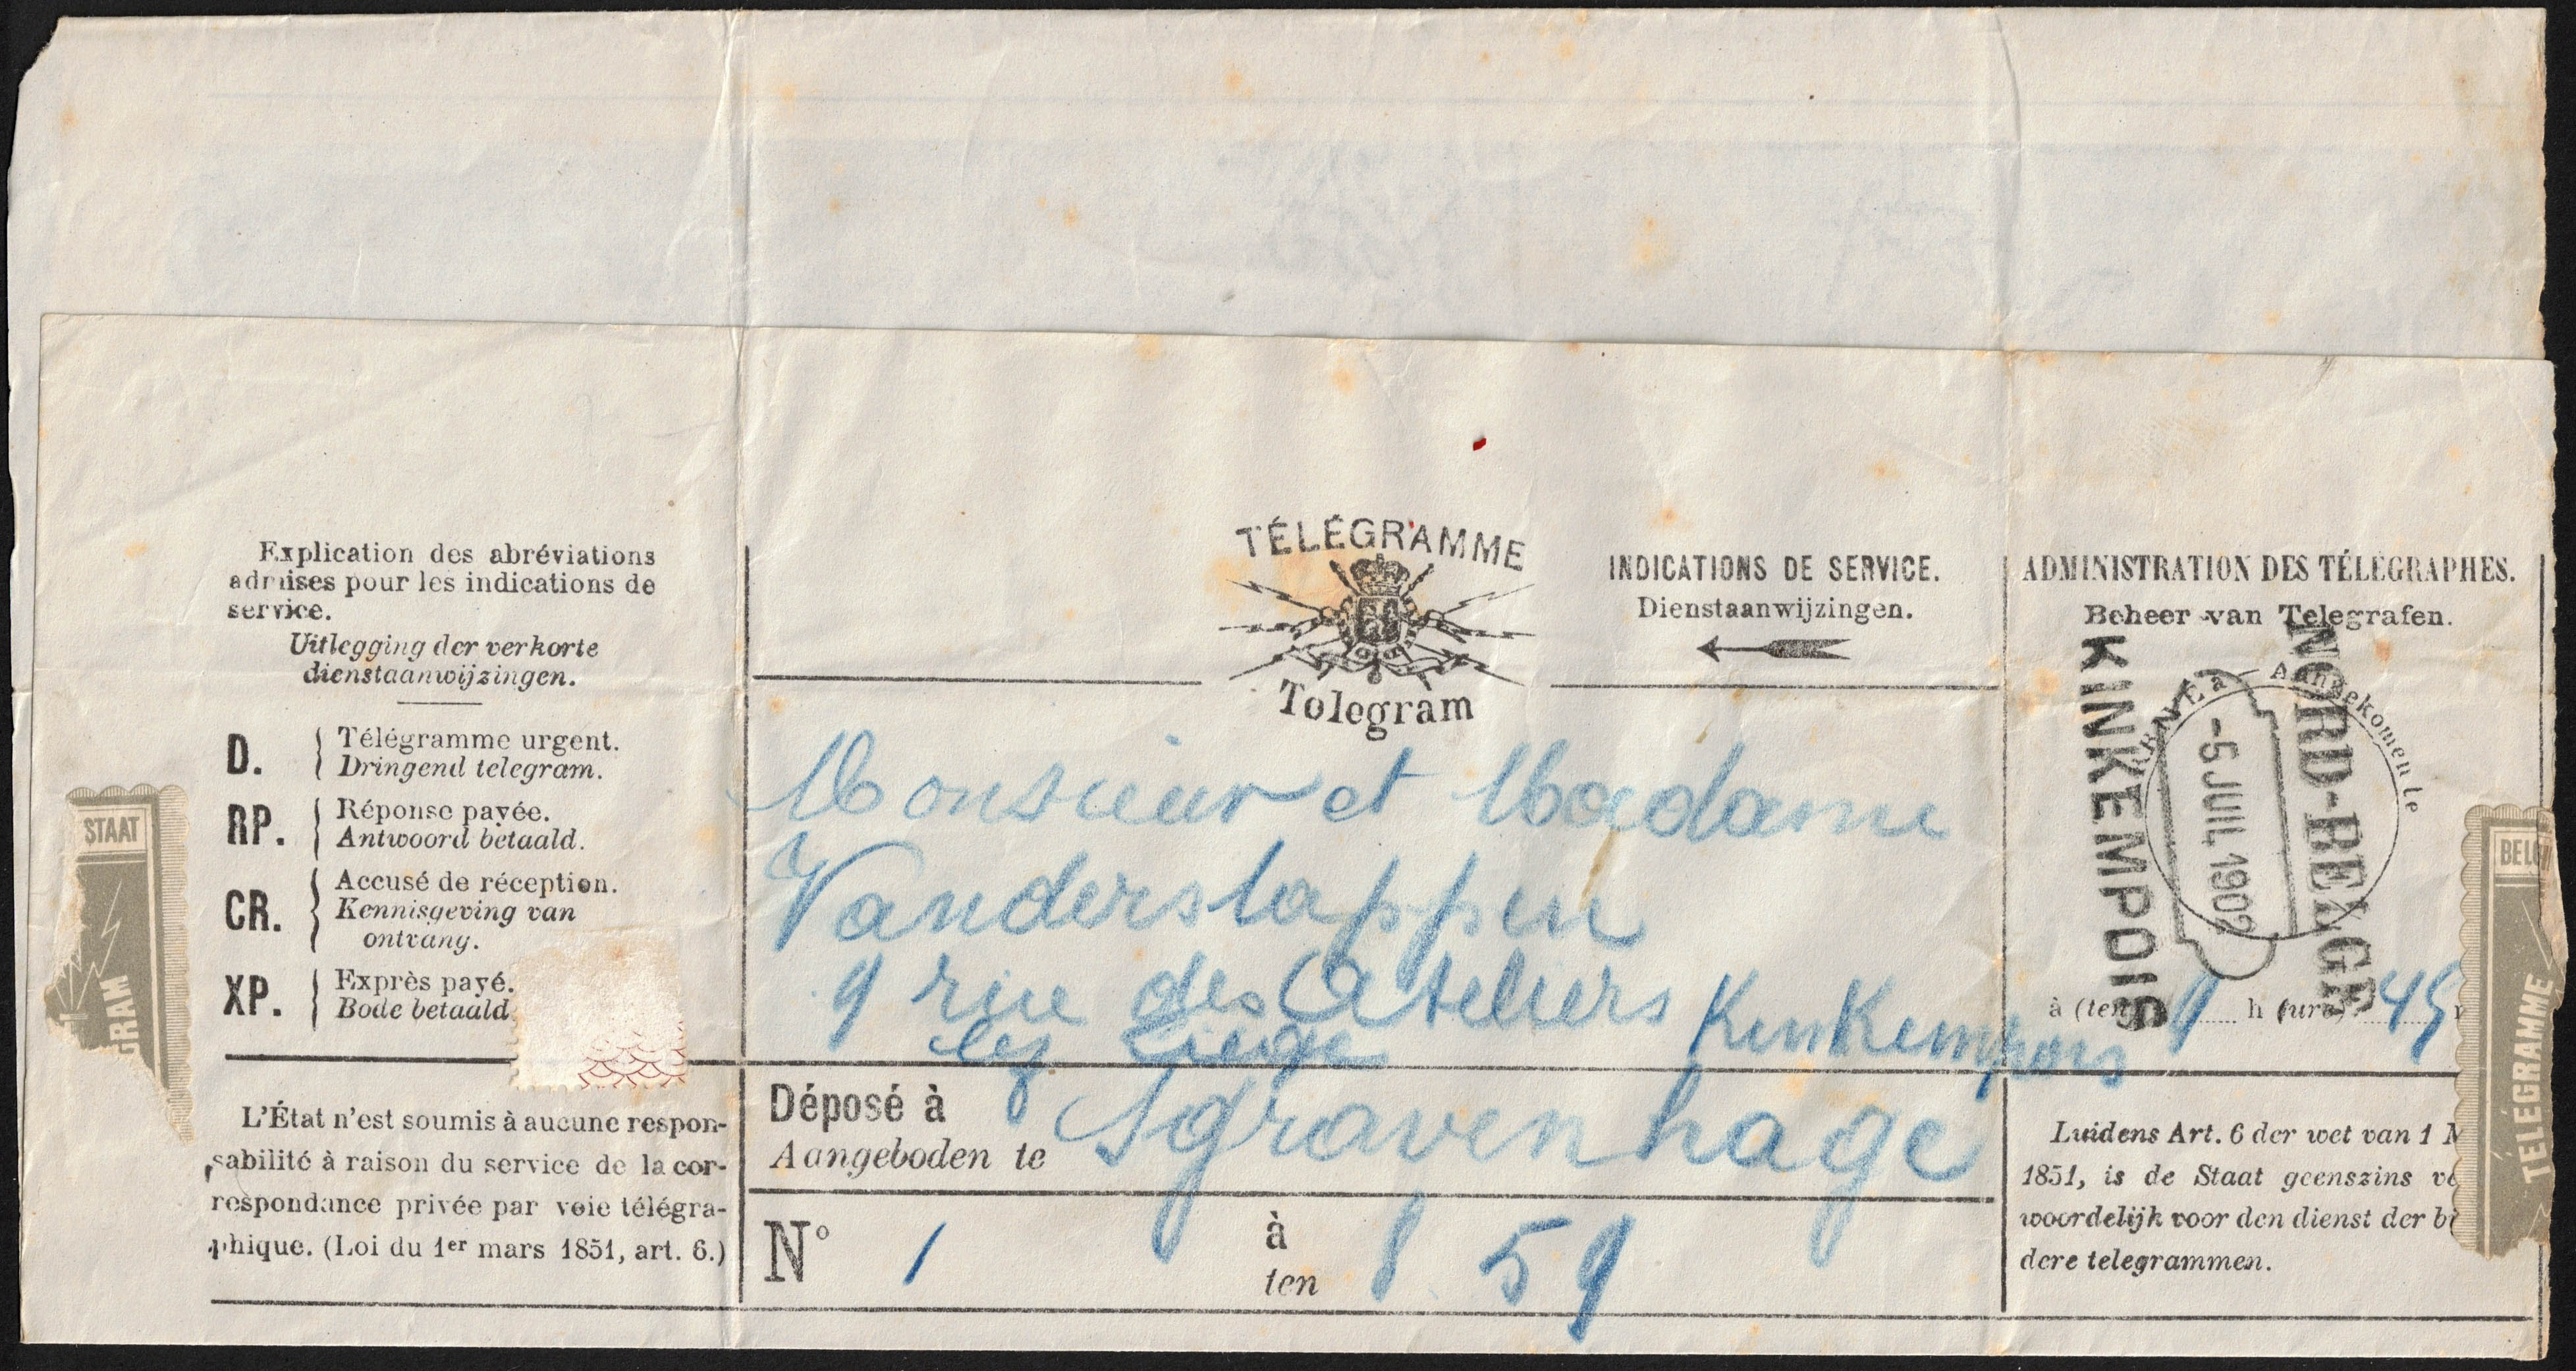 Explication des abréviations
admises pour les indications de
service.
Uitlegging der verkorte
dienstaanwijzingen.
D. Télégramme urgent.
Dringend telegram.
RP. Réponse payée.
Antwoord betaald.
CR. Accusé de réception.
Kennisgeving van
ontvang.
XP. Exprès payé.
Bode betaald
L'État n'est soumis à aucune respon-
sabilité à raison du service de la cor-
respondance privée par voie télégra-
phique. (Loi du 1er mars 1851, art. 6.)
STAAT
GRAM
TÉLÉGRAMME
Telegram
INDICATIONS DE SERVICE.
Dienstaanwijzingen.
Monsieur et Madame
Vanderstappen
9 rue des Ateliers Kinkempois
lez Liège
Déposé à
Aangeboden te
Sgravenhage
N° 1 à
ten 8 59
ADMINISTRATION DES TÉLÉGRAPHES.
Beheer van Telegrafen.
Aangekomen te
NORD-BELGE
-5 JUIL 1902
KINKEMPOIS
à (ten) 9 h (ure) 45
Luidens Art. 6 der wet van 1 M
1851, is de Staat geenszins ve
woordelijk voor den dienst der bi
dere telegrammen.
BELG
TÉLÉGRAMME